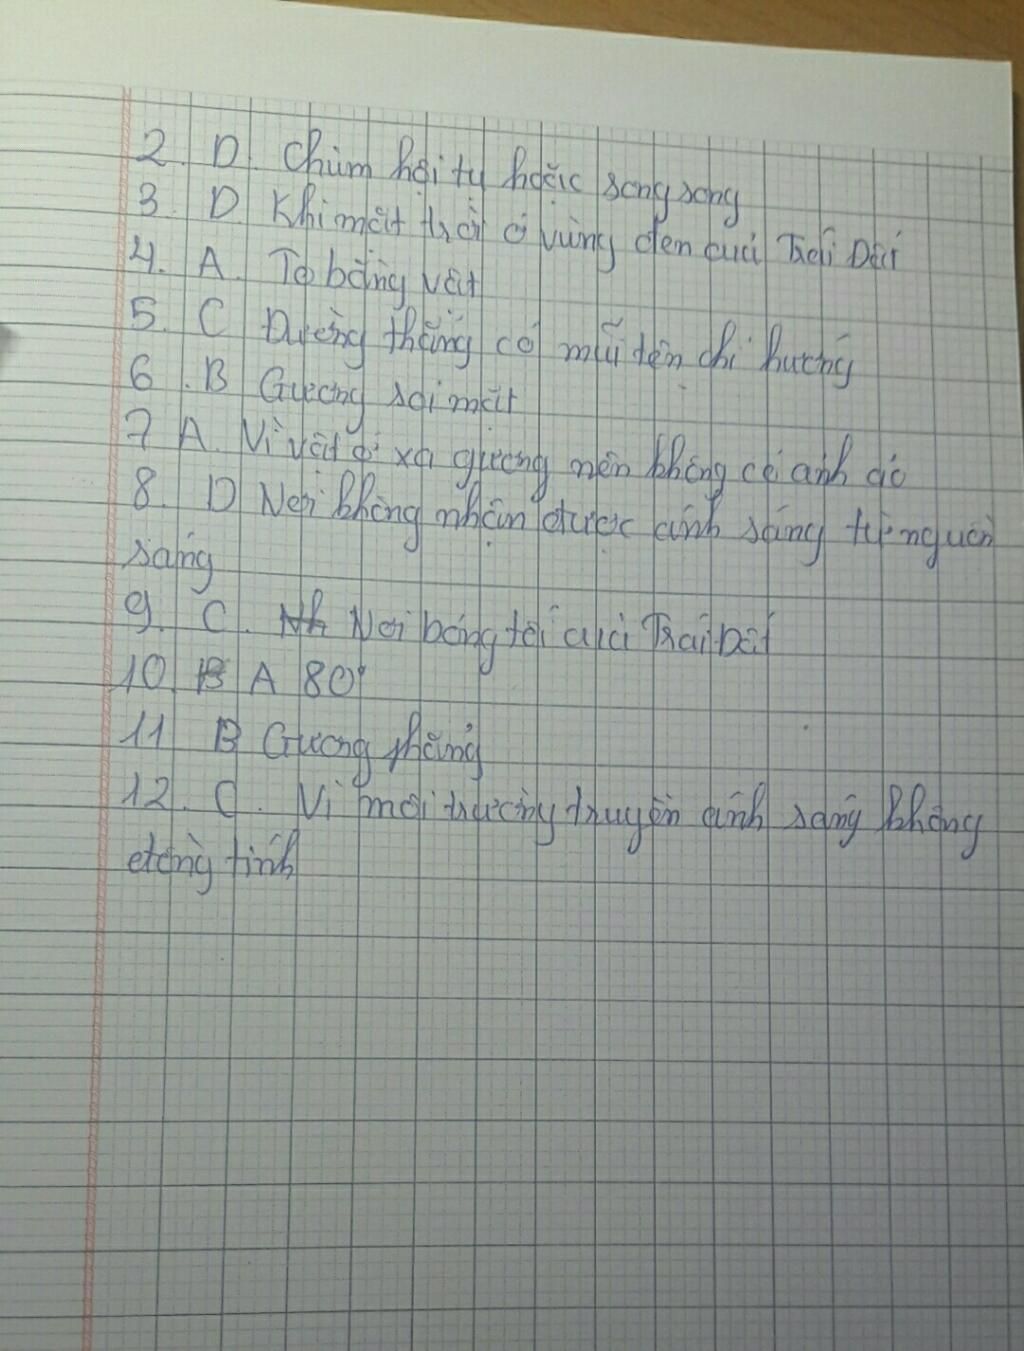 2. D. Chùm hội tụ hoặc song song
3. D. Khi mặt trời ở vùng đen cuả Trái Đất
4. A. To bằng vật
5. C Đường thẳng có mũi tên chỉ hướng
6. B Gương soi mặt
7 A. Vì vật ở xa gương nên không có ảnh ảo
8. D Nơi không nhận được ánh sáng từ nguồn
sáng
9. C. Nơi bóng tối cuả Trái Đất
10 A 80°
11 B Gương phẳng
12. C. Vì môi trường truyền ánh sáng không
đồng tính